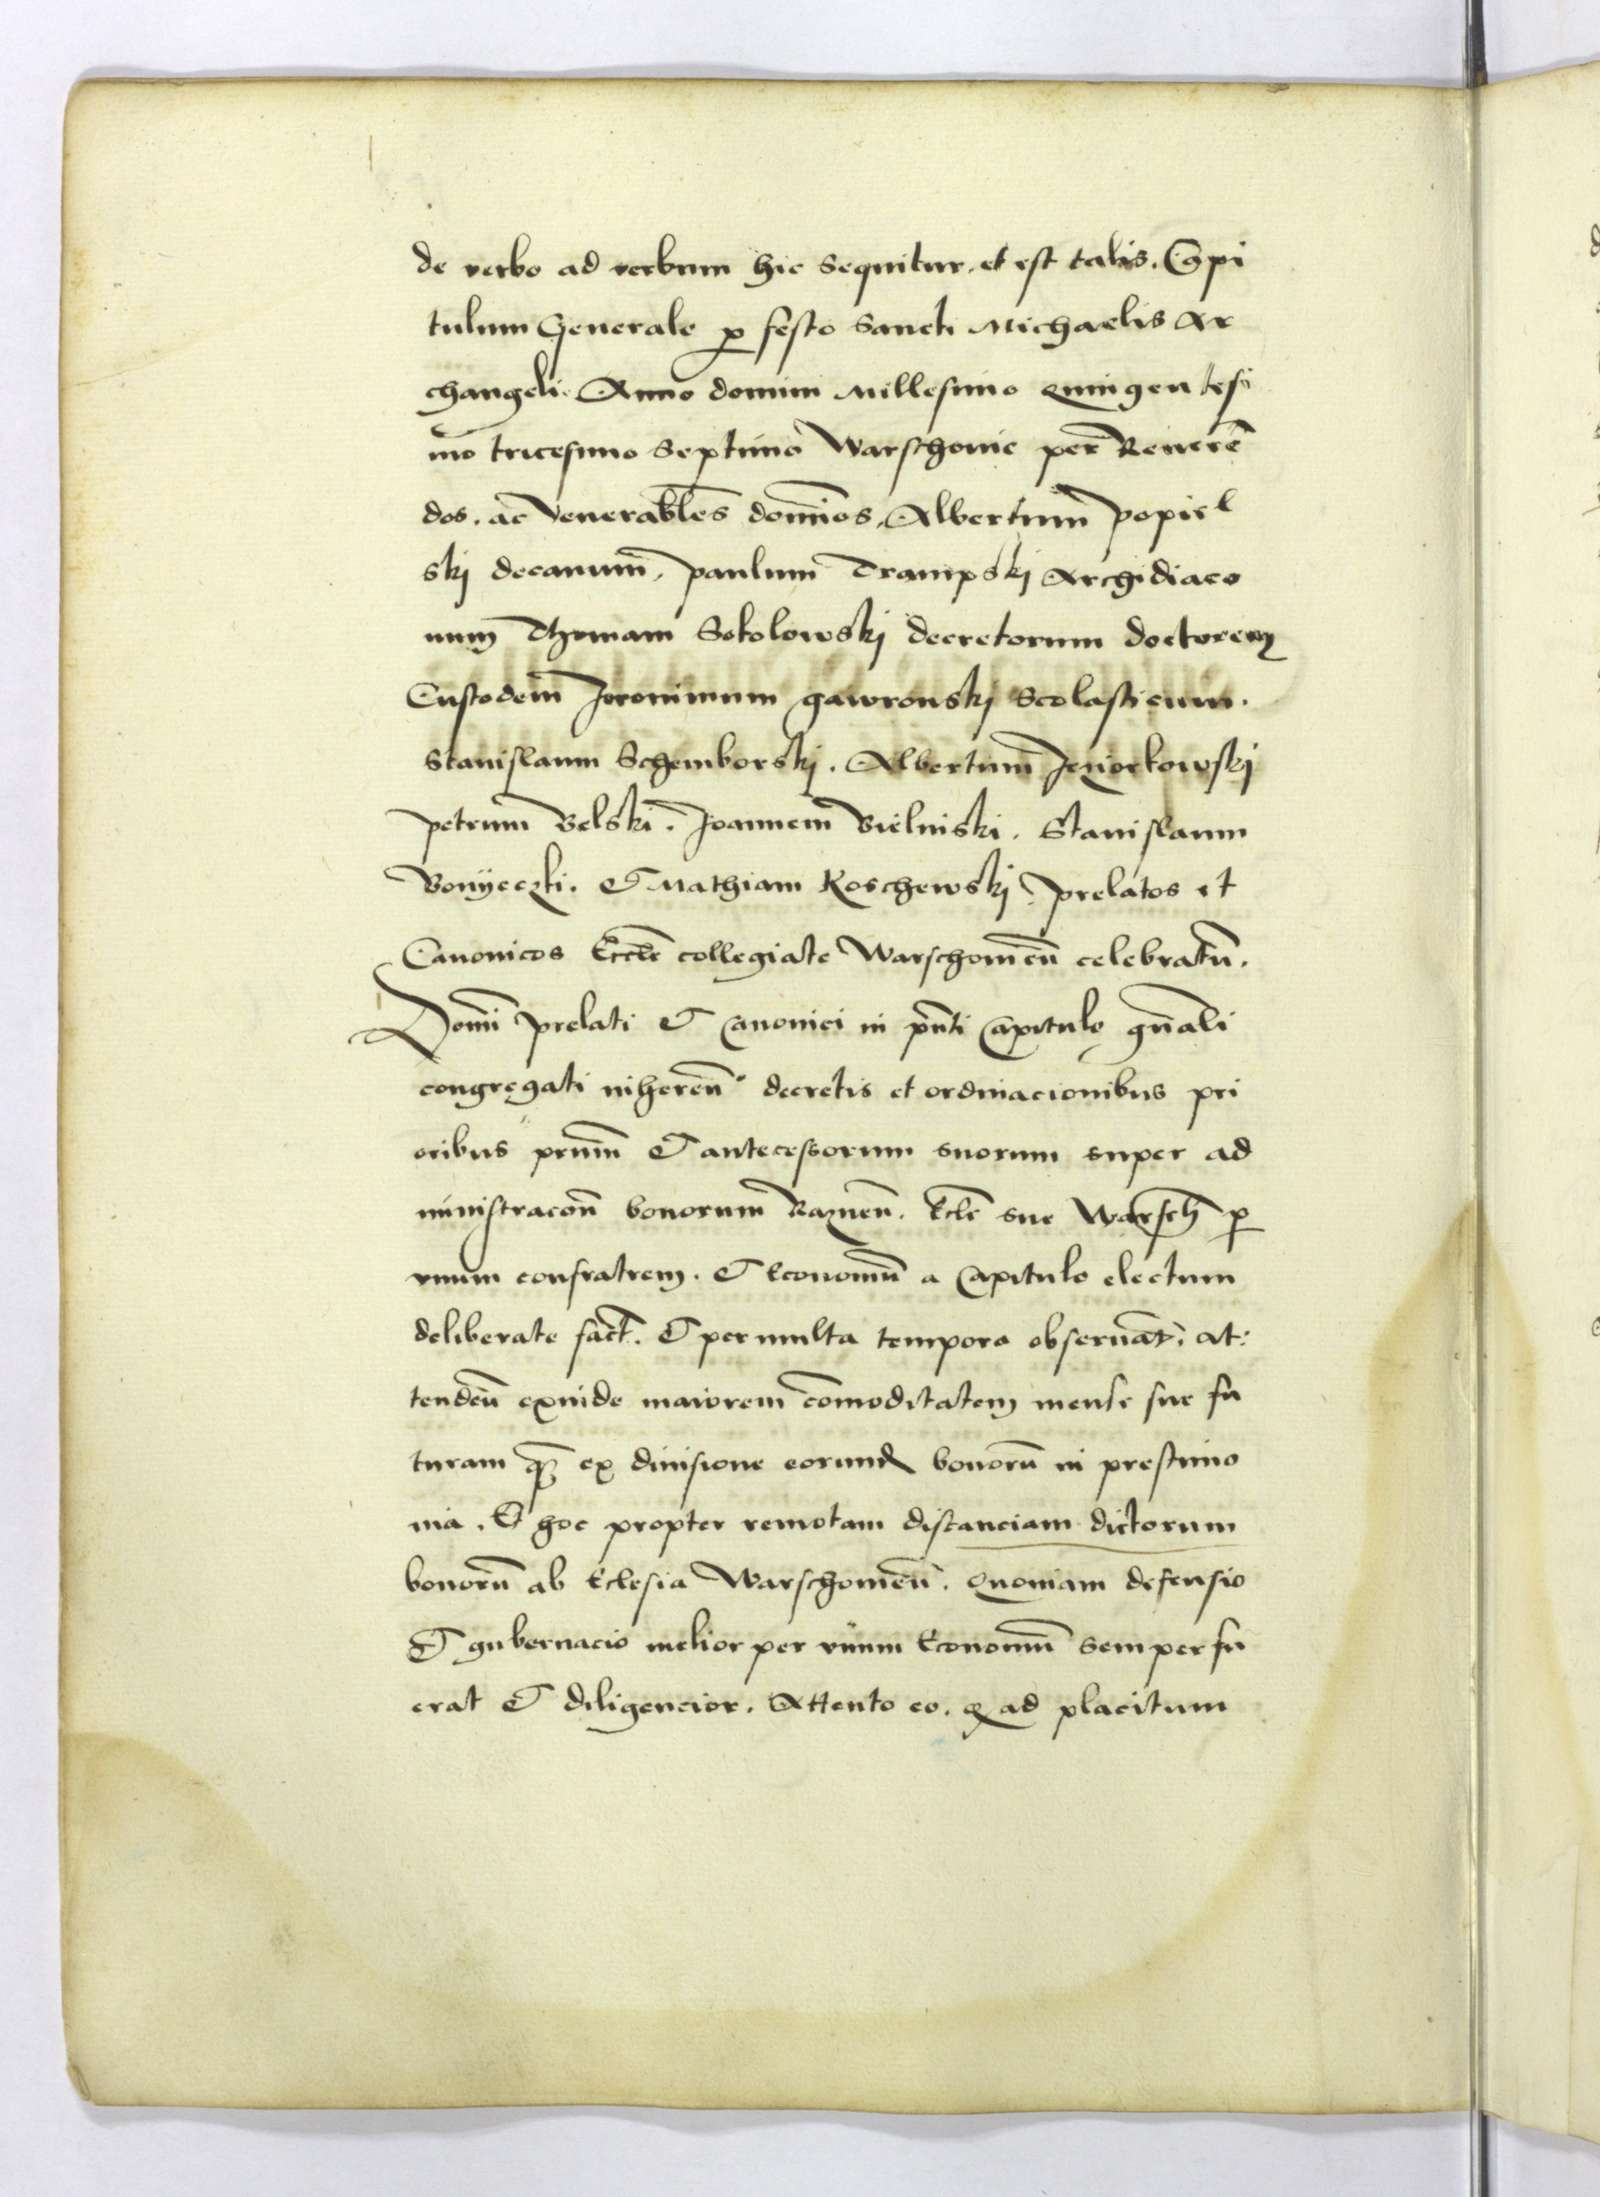 de verbo ad verbum hic Sequitur. et est talis. Capi
tulum Generale p festo Sancti Michaelis Ar
changeli. Anno domini Millesimo Quingentesi
mo tricesimo Septimo Warschovie per Reverē
dos. ac Venerabl̄es dom̄ios, Albertum popiel
skj decanum, paulum Drampskj Archidiaco
num Thomam Sokolowskj decretorum doctorem
Custodem Jeronimum gawronskj Scolasticum.
Stanislaum Schemborskj. Albertum Jeżiorkowskj
petrum Belski. Joannem Bielniski. Stanislaum
Bonÿeczki. Et Mathiam Koschewskj. prelatos et
Canonicos Eccl̄e collegiate Warschovieñ celebratū.
Domī prelati Et Canonici in pn̄ti Capitulo gn̄ali
congregati inhereñ decretis et ordinacionibus pri
oribus prium̄ Et antecessorum suorum super ad
ministracoñ bonorum Razneñ. Ecle sue Warsch̄ p
vnum confratrem. Et Economū a Capitulo electum
deliberate fact̄. Et per multa tempora observat̄. at:
tendeñ exinde maiorem cōmoditatem mense sue fu
turam q̄ ex divisione eorund bonorū in prestimo
nia. Et hoc propter remotam distanciam dictorum
bonorū ab Eclesia Warschovieñ. Quoniam defensio
Et gubernacio melior per vnum Economū semper fu
erat Et diligencior. Attento eo. q ad placitum